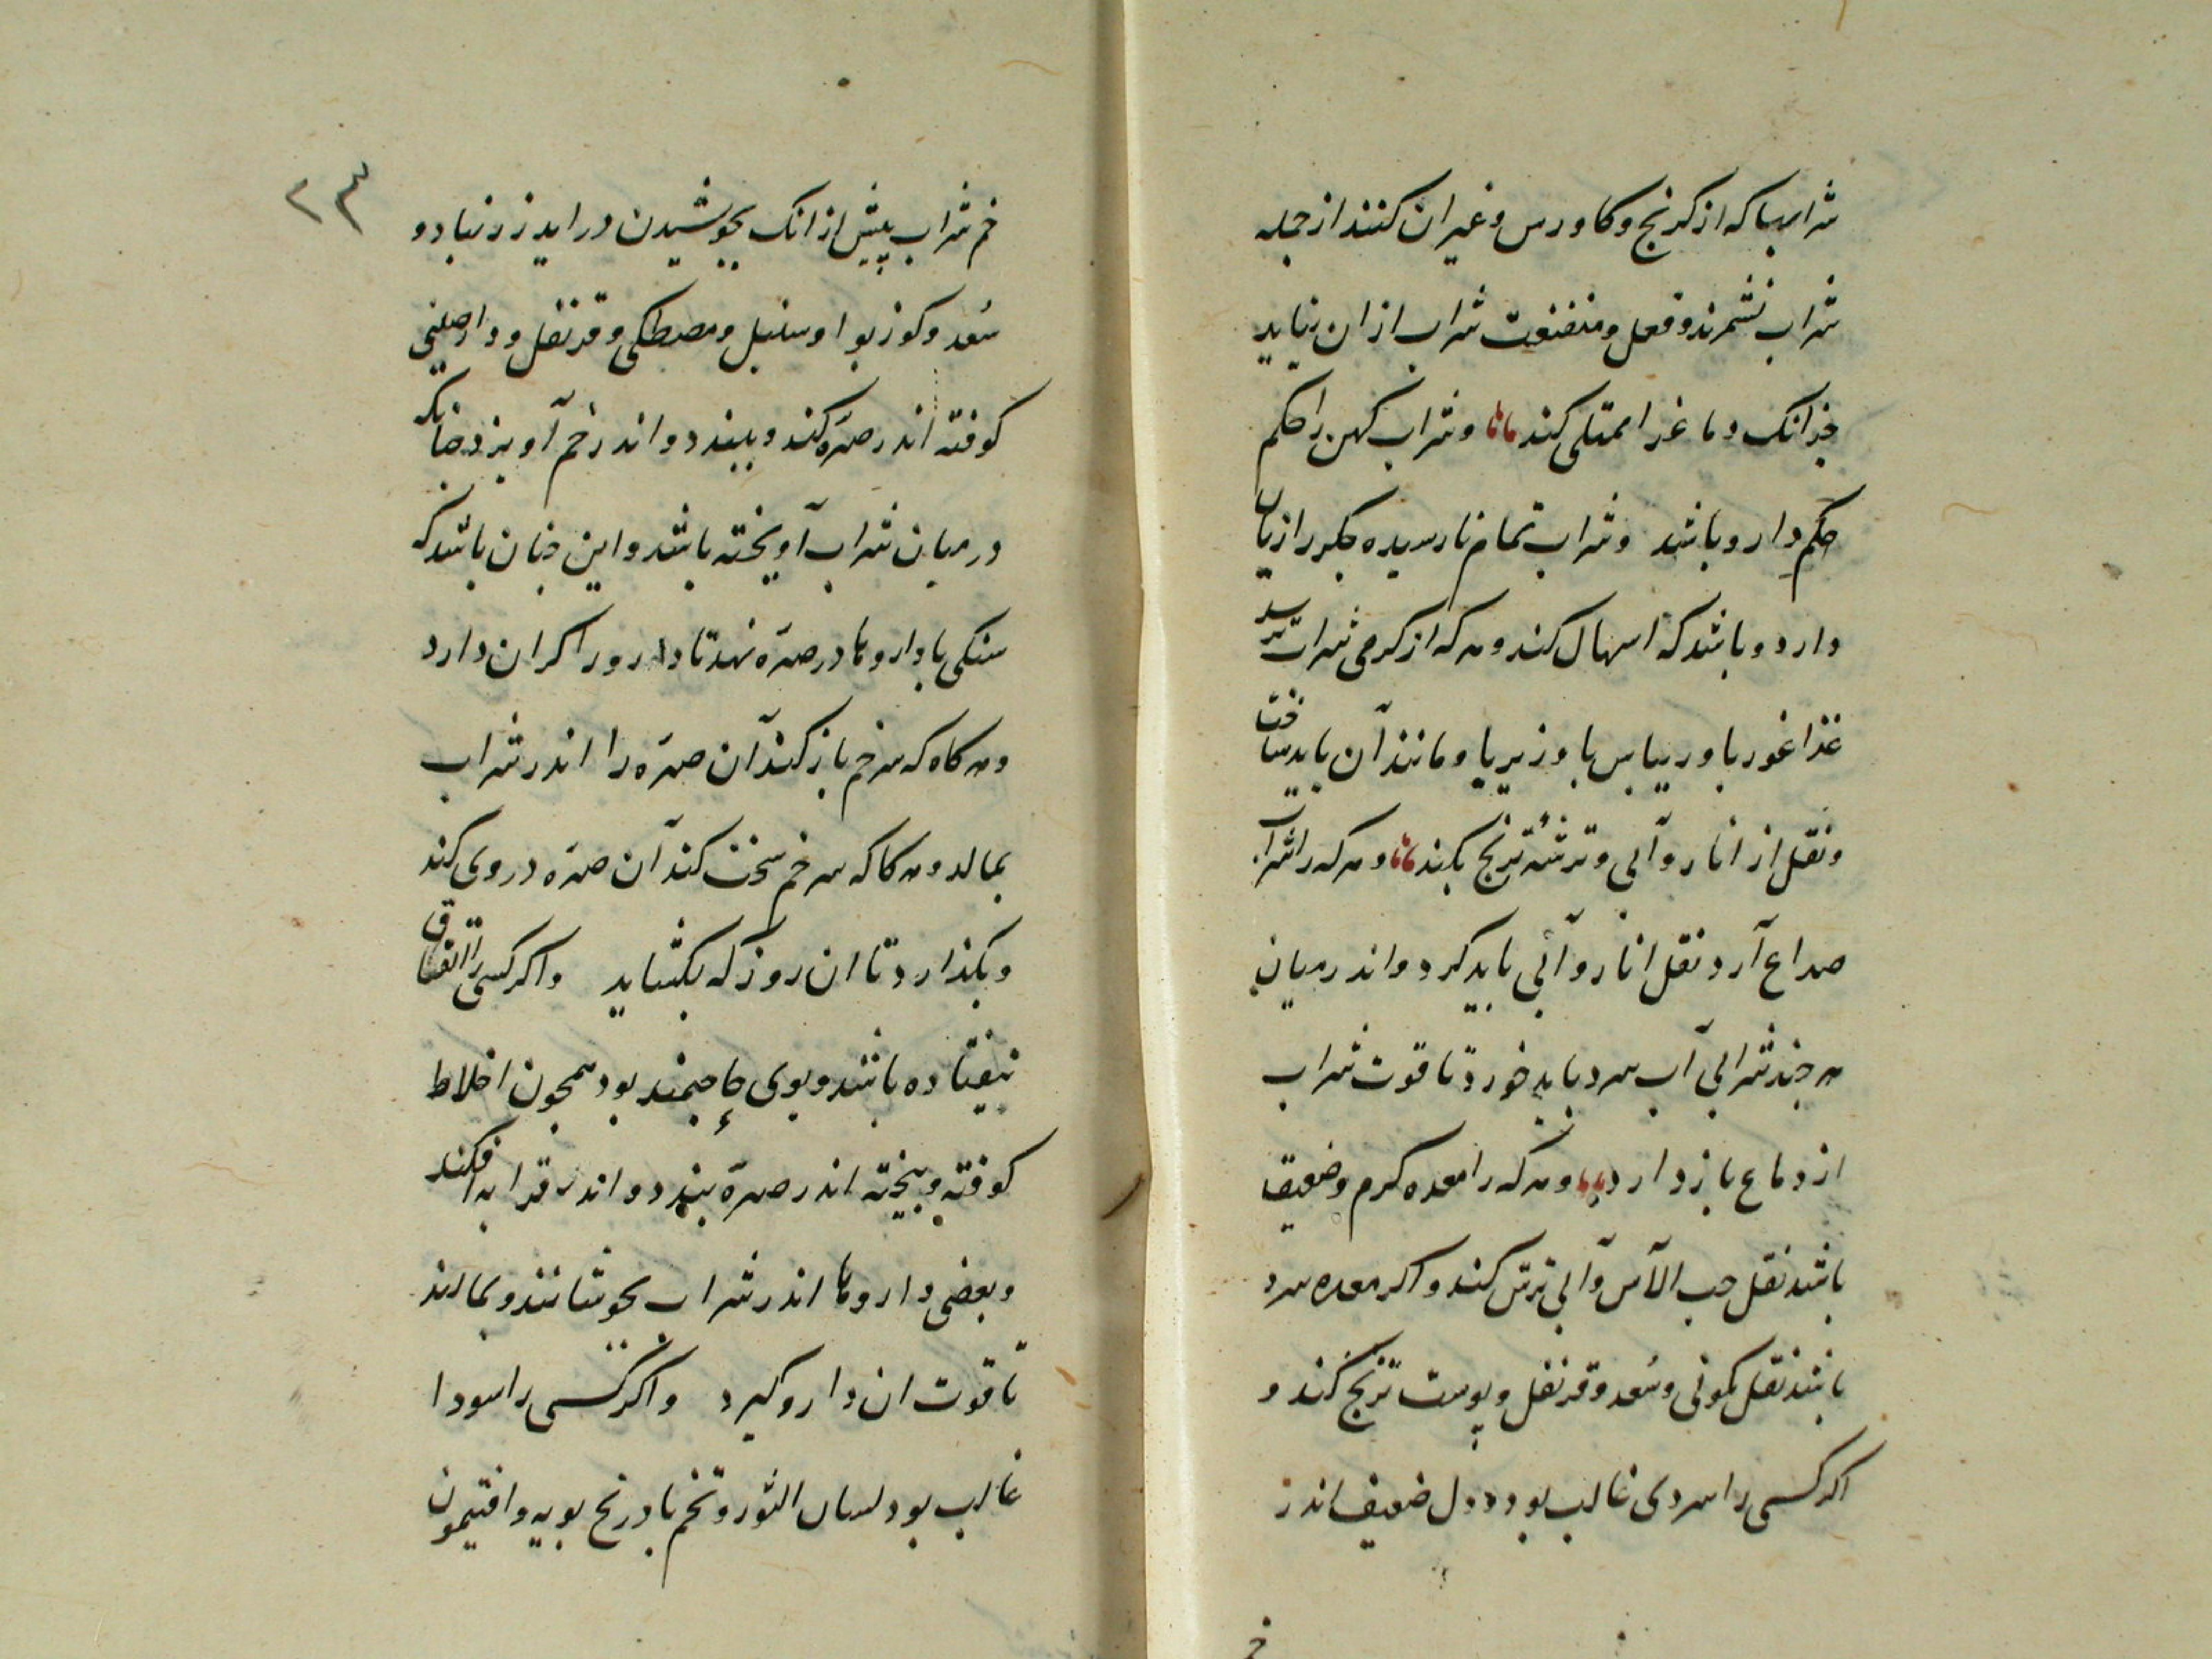 شرابها که از کرنج و کاورس و غیر ان کنند از جمله
شراب نشمرند و فعل و منفعت شراب از ان نیاید
جز انک دماغ را ممتلی کند وشراب کهن را حکم
حکم دارو باشد وشراب تمام نارسیده جگر را زیان
دارد و باشد که اسهال کند و هر که از کرمی شراب ترسد
غذا غوربا و ریباس با و زیربا و مانند آن باید ساخت
ونقل از انار و آبی و ترشه ترنج بکند و هر که را شراب
صداع آرد نقل انار و آبی باید کرد و اندر میان
هر چند شرابی آب سرد باید خورد تا قوت شراب
از دماغ باز دارد و هر که را معده کرم و ضعیف
باشد نقل حب الآس و آبی ترش کند و اکر معده سرد
باشد نقل کمونی و سُعد و قرنفل و پوست ترنج کند و
اکر کسی را سردی غالب بود و دل ضعیف اندر
خم
٢٣
خم شراب پیش از انک بجوشیدن در اید زرنباد و
سُعد و کوز بوا و سنبل و مصطکی و قرنفل و دارصینی
کوفته اندر صرّه کند و ببندد و اندر خم آویزد چنانکه
در میان شراب آویخته باشد و این چنان باشد که
سنکی با داروها در صرّه نهد تا دارو را کران دارد
و هر کاه که سر خم باز کند آن صرّه را اندر شراب
بمالد و هر کاکه سر خم سخت کند آن صرّه در وی کند
و بکذارد تا ان روز که بکشاید واکر کسی را اتفاق
نیفتاده باشد و بوی حاجتمند بود همچون اخلاط
کوفته و بیخته اندر صرّه بندد و اندر قرابه افکند
و بعضی داروها اندر شراب بجوشانند و بمالند
تا قوت ان دارو کیرد واکر کسی را سودا
غالب بود لسان الثور و تخم بادرنج بویه و افتیمون